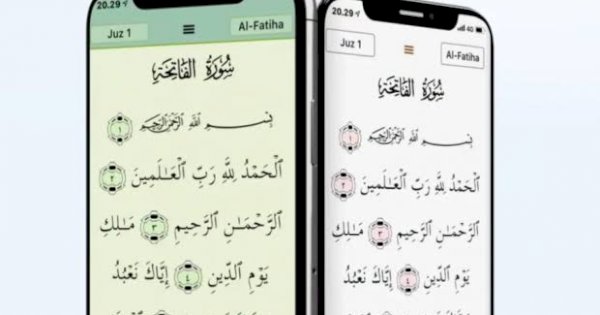 20.29
Juz 1
Al-Fatiha
سُورَةُ الفَاتِحَةِ
بِسْمِ اللَّهِ الرَّحْمَٰنِ الرَّحِيمِ ١
الْحَمْدُ لِلَّهِ رَبِّ الْعَالَمِينَ ٢
الرَّحْمَٰنِ الرَّحِيمِ ٣ مَالِكِ
يَوْمِ الدِّينِ ٤ إِيَّاكَ نَعْبُدُ
20.29
4G
Juz 1
Al-Fatiha
سُورَةُ الفَاتِحَةِ
بِسْمِ اللَّهِ الرَّحْمَٰنِ الرَّحِيمِ ١
الْحَمْدُ لِلَّهِ رَبِّ الْعَالَمِينَ ٢
الرَّحْمَٰنِ الرَّحِيمِ ٣ مَالِكِ
يَوْمِ الدِّينِ ٤ إِيَّاكَ نَعْبُدُ